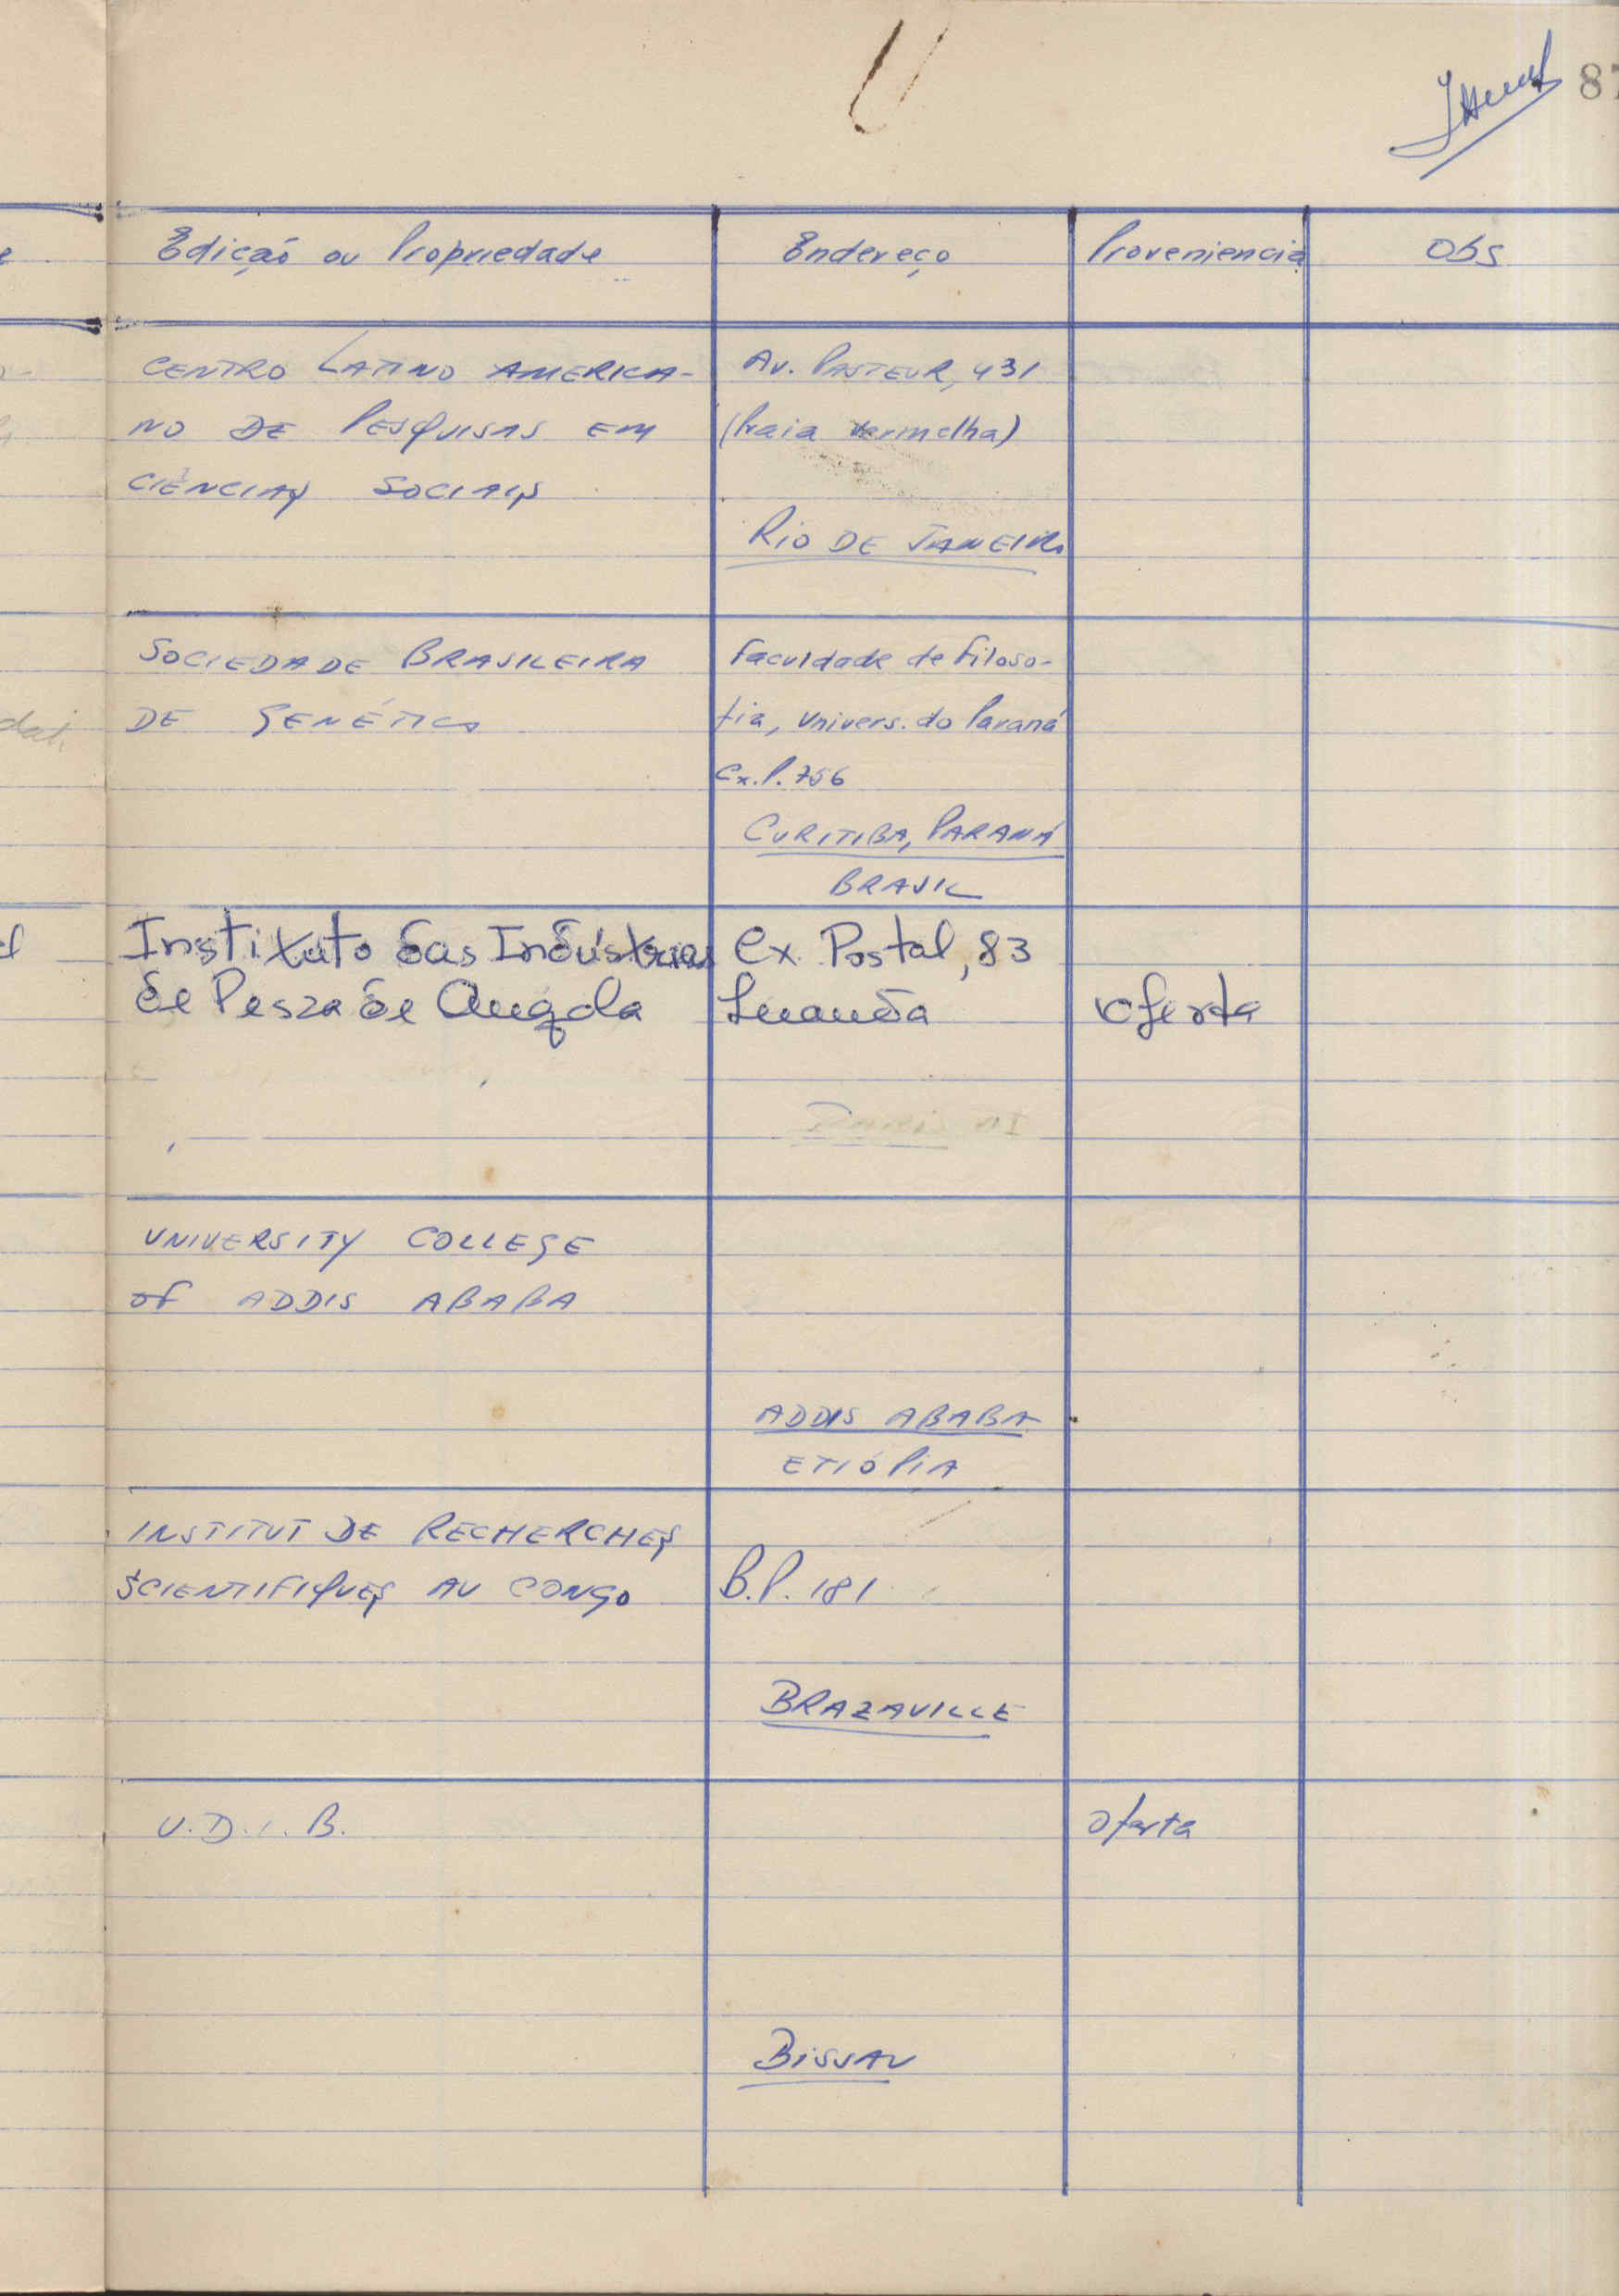 87
Edição ou Propriedade Endereço Proveniencia Obs
CENTRO LATINO AMERICA- Av. PASTEUR, 431
NO DE PESQUISAS EM (Praia Vermelha)
CIÊNCIAS SOCIAIS
RIO DE JANEIRO
SOCIEDADE BRASILEIRA Faculdade de Filoso-
DE GENÉTICA fia, Univers. do Paraná
Cx. P. 756
CURITIBA, PARANÁ
BRASIL
Instituto das Indústrias Cx. Postal, 83
de Pesca de Angola Luanda oferta
UNIVERSITY COLLEGE
of ADDIS ABABA
ADDIS ABABA
ETIÓPIA
INSTITUT DE RECHERCHES
SCIENTIFIQUES AU CONGO B.P. 181
BRAZAVILLE
U.D.I.B. oferta
BISSAU